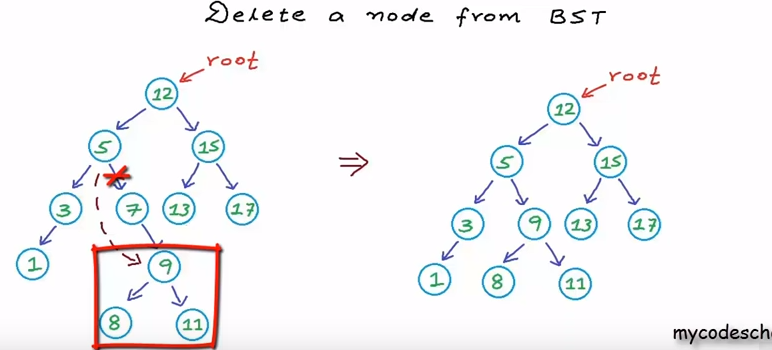 Delete a node from BST
root
12
5 15
3 7 13 17
1 9
8 11
⇒
root
12
5 15
3 9 13 17
1 8 11
mycodesch